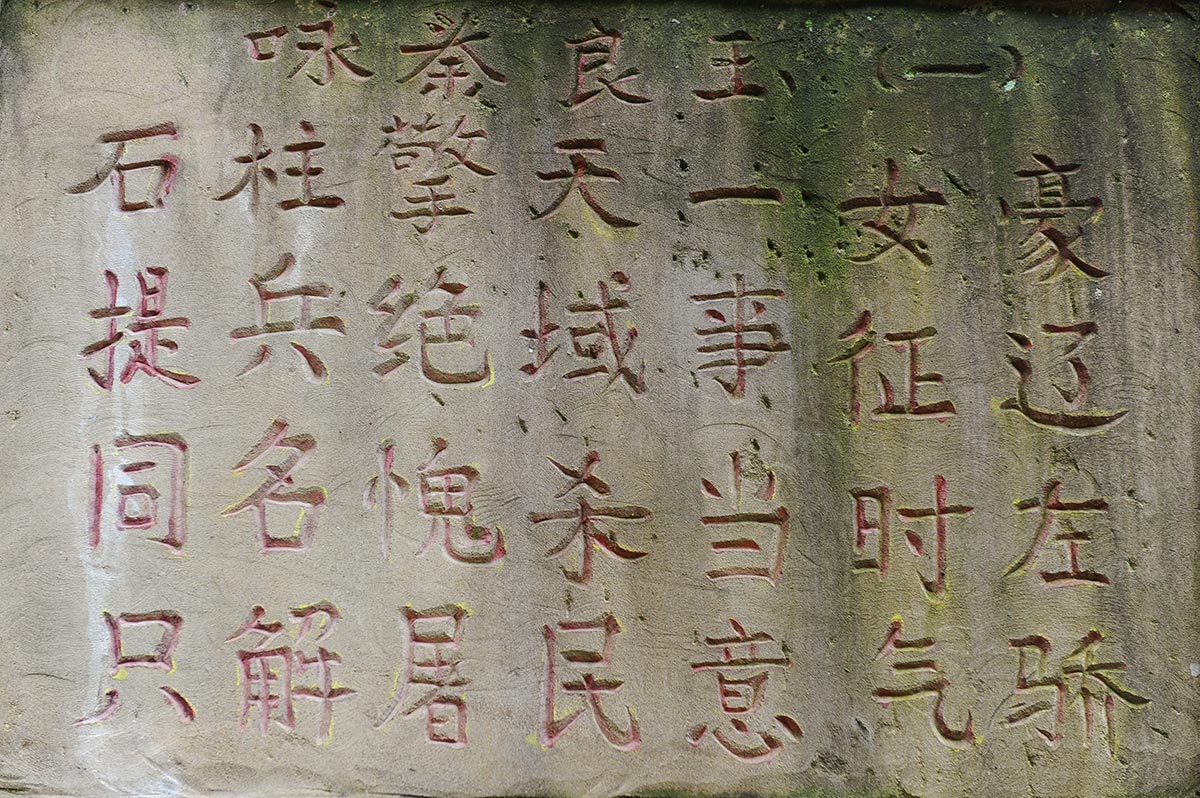 咏秦良玉(一)
石柱擎天一女豪
提兵绝域事征辽
同名愧杀当时左
只解屠民意气骄